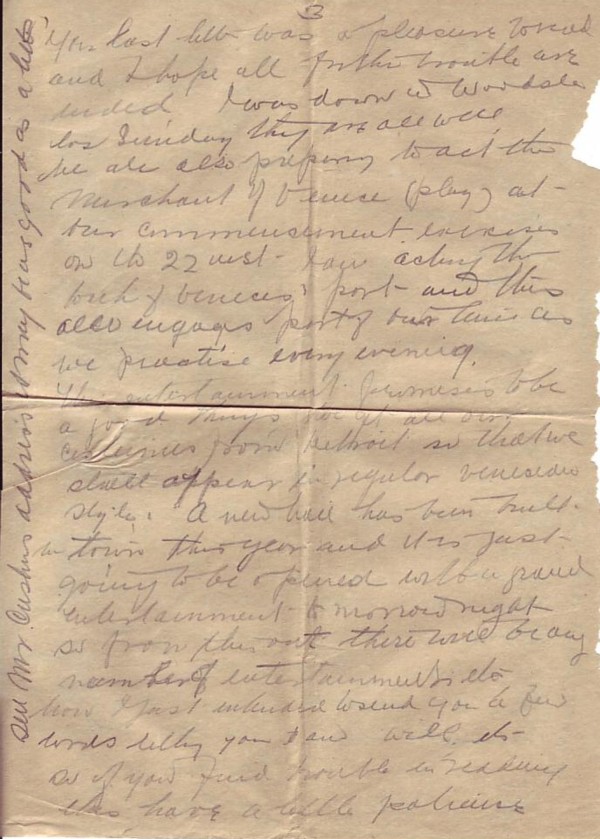 3
Your last letter was a pleasure to read
and I hope all further trouble are
ended I was down at
las Sunday they are all well,
We are also preparing to act the
Merchant of Venice (play) at
our commencement exercises
on the 22 inst. I am acting the
of Venice's part and this
also engages part of our time as
we practise every evening.
The entertainment promises to be
a good thing we get all our
costumes from Detroit so that we
shall appear in regular venecian
style. A new hall has been built
in town this year and it is just
going to be opened with a grand
entertainment to morrow night
so from this out there will be any
number of entertainments etc
now I just intended to send you a few
words telling you I am well etc
so if you find trouble in reading
this have a little patience
Send Mr. address it may be as good as a letter